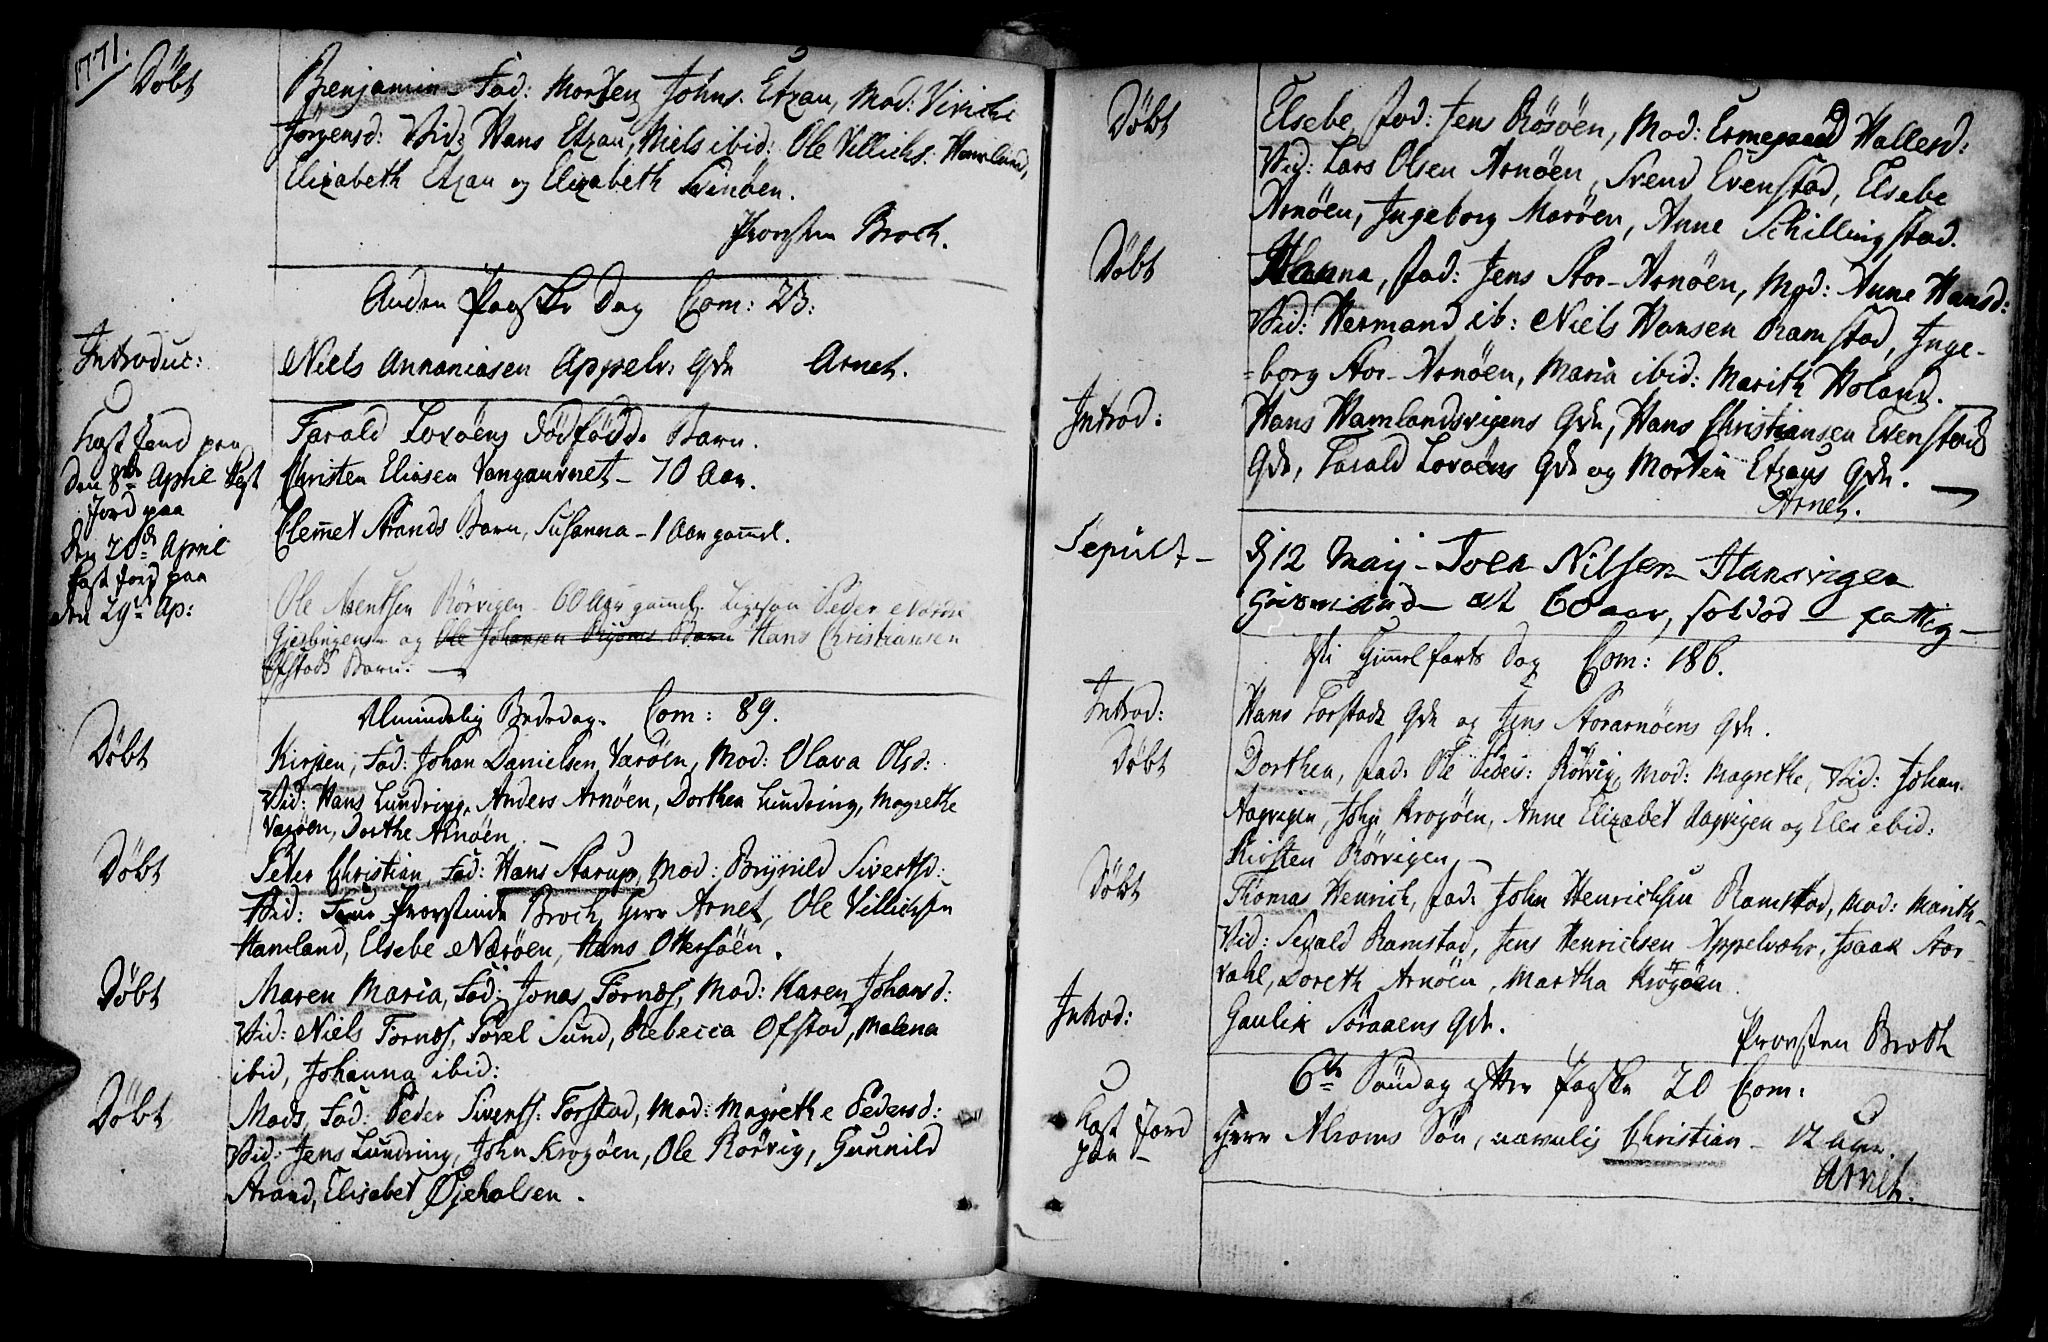 1771.
Døbt
Benjamin, Fad: Morten Johns. Etzau, Mod: Viviche
Jørgensd: Vid: Hans Etzau, Niels ibid: Ole Villichs: Hamland,
Elizabeth Etzau og Elizabeth Svinøen.
Provsten Broch.
Anden Paaske Dag Com: 23:
Introduc:
Niels Annaniasen Appelv: Qde Arnet.
Kast Jord paa
den 8de April Kast
Jord paa
den 20de April
kast Jord paa
den 29de Ap:
Tarald Lovøens dødfødde Barn.
Christen Eliasen Vangaurnet - 70 Aar.
Clemmet Strands Barn, Susanna - 1 Aar gamel.
Ole Arentsen Rörvigen - 60 Aar gamel. Ligesaa Peder
Gieslingens og Ole Johansen Barn Hans Christiansen
Ofstads Barn.
Almindelig Bededag. Com: 89.
Døbt
Kirsten, Fad: Johan Danielsen Værøen, Mod: Olava Olsd:
Vid: Hans Lundring, Anders Arnøen, Dorthea Lundring, Magrethe
Værøen, Dorthe Arnøen.
Døbt
Peter Christian, Fad: Hans Starup, Mod: Brynild Sivertsd:
Vid: Frue Provstinde Broch, Herr Arnet, Ole Villichsen
Hamland, Elsebe Nærøen, Hans Ottersøen.
Døbt
Maren Maria, Fad: Jonas Fornæs, Mod: Karen Johansd:
Vid: Niels Fornæs, Povel Sund, Rebecca Ofstad, Malena
ibid, Johanna ibid:
Døbt
Mads, Fad: Peder Siverts: Forstad, Mod: Magrethe Pedersd:
Vid: Jens Lundring, John Krogøen, Ole Rörvig, Gunnild
Strand, Elisabet Øjeholsen.
Døbt
Elsebe, Fad: Jens Røsøen, Mod: Ermegaard Hallesd:
Vid: Lars Olsen Arnøen, Svend Evenstad, Elsebe
Arnøen, Ingeborg Marøen, Anne Schillingstad.
Døbt
Hanna, Fad: Jens Stor-Arnøen, Mod: Anne Hansd:
Vid: Hermand ib: Niels Hansen Ramstad, Inge-
=borg Stor-Arnøen, Maria ibid: Marith Holand.
Introd:
Hans Hamlandsvigens Qde, Hans Christiansen Evenstads
Qde, Tarald Lovøens Qde og Morten Etzaus Qde.
Arnet.
Sepult -
d 12 Maij - Joen Nilsen Hansvigen
æt 60 aar, sotdød - fattig -
Chri Himmelfarts Dag Com: 186.
Introd:
Hans Forstads Qde og Jens Storarnøens Qde.
Døbt
Dorthea, Fad: Ole Peders: Rörvig, Mod: Magrethe, Vid: Johan
Aagvigen, John Krogøen, Anne Elizabet Aagvigen og Elen ibid:
Kirsten Rörvigen. -
Døbt
Thomas Henrich, Fad: John Henrichsen Ramstad, Mod: Marith -
Vid: Sevald Ramstad, Jens Henrichsen Appelvær, Isaak Stor-
vahl, Doreth Arnøen, Martha Krogøen.
Introd:
Gaulix Søraaens Qde.
Provsten Broch
6te Søndag efter Paaske 20 Com:
Kast Jord
paa -
Herr Alroms Søn, navnlig Christian - 12 Uger.
Arnet.